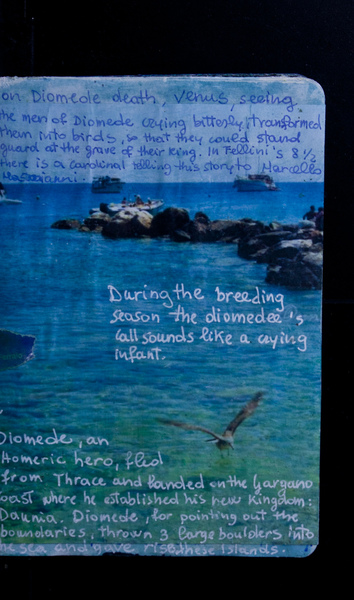 on Diomede death, Venus, seeing
the men of Diomede crying bitterly, transformed
them into birds, so that they could stand
guard at the grave of their King. In Fellini's 8 1/2
there is a cardinal telling this story to Marcello
Mastroianni.
During the breeding
season the diomedee's
call sounds like a crying
infant.
Diomede, an
Homeric hero, fled
from Thrace and landed on the Gargano
coast where he established his new Kingdom:
Daunia. Diomede, for pointing out the
boundaries, thrown 3 large boulders into
the sea and gave rise these islands.